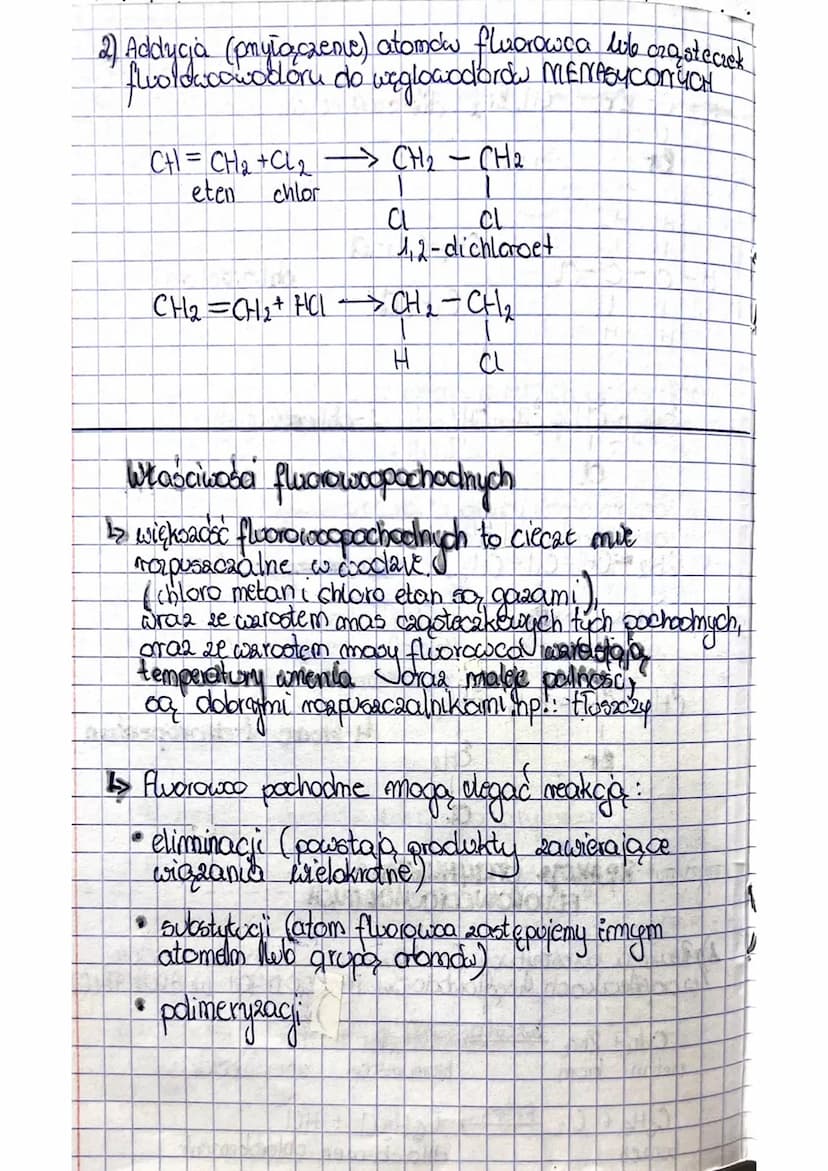 2) Addycja (przyłączenie) atomów fluorowca lub cząsteczek
fluorowcowodoru do węglowodorów NIENASYCONYCH
CH = CH₂ + Cl₂ → CH₂ – CH₂
eten chlor
Cl Cl
1,2-dichloroet
CH₂ = CH₂ + HCl → CH₂ – CH₂
H Cl
Właściwości fluorowcopochodnych
↳ większość fluorowcopochodnych to ciecze nie
rozpuszczalne w wodzie.
(chloro metan i chloro etan są gazami),
wraz ze wzrostem mas cząsteczkowych tych pochodnych,
oraz ze wzrostem masy fluorowca wzrastają
temperatury wrzenia oraz maleje palność,
są dobrymi rozpuszczalnikami np.: tłuszczy
↳ Fluorowco pochodne mogą ulegać reakcją:
• eliminacji (powstają produkty zawierające
wiązania wielokrotne)
• substytucji (atom fluorowca zastępujemy innym
atomem lub grupą atomów)
• polimeryzacji